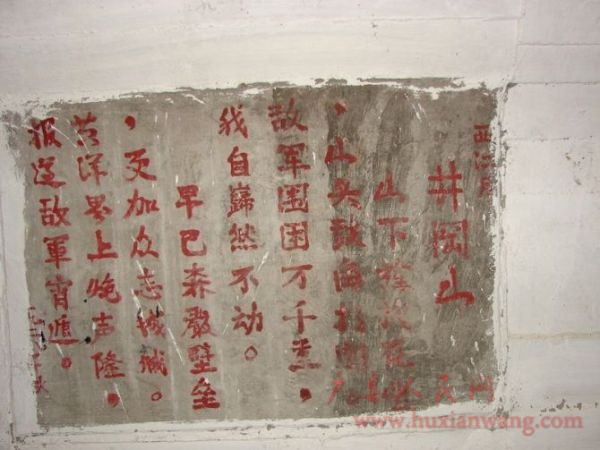 西江月
井岡山
山下旌旗在
，山头鼓角相闻
敌军围困万千重，
我自巋然不动。
早已森嚴壁垒
，更加众志城城。
黄洋界上炮声隆，
报道敌軍宵遁。
户县人民网
www.huxianwang.com